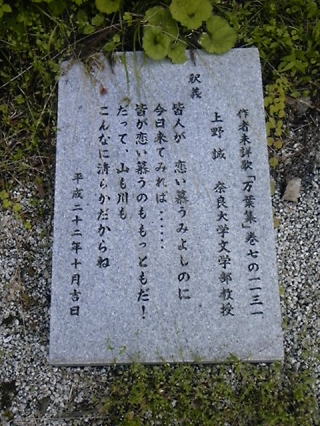 作者未詳歌『万葉集』巻七の一一三一
上野 誠 奈良大学文学部教授
釈義
皆人が 恋い慕うみよしのに
今日来てみれば・・・・・
皆が恋い慕うのももっともだ！
だって、山も川も
こんなに清らかだからね
平成二十二年十月吉日